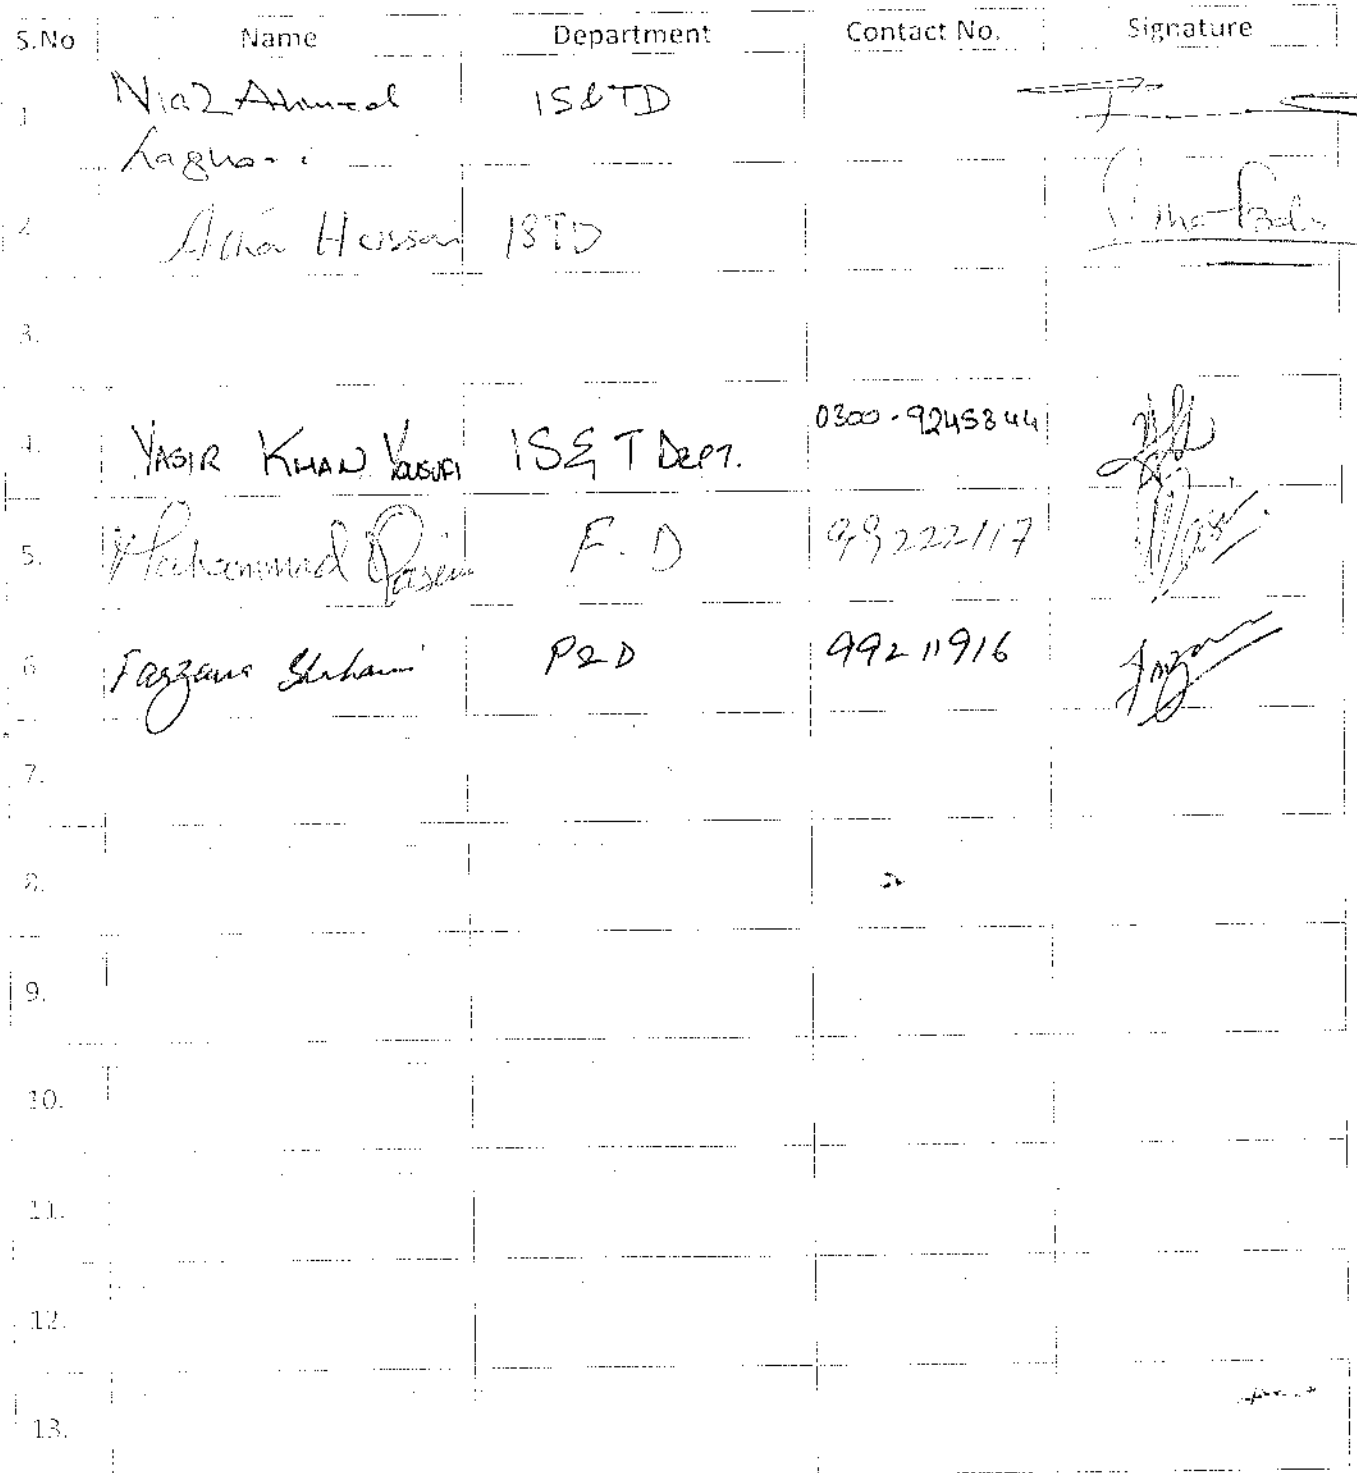 S.No Name Department Contact No. Signature
1 Niaz Ahmed IS&TD
Laghari
2 Hussain ISTD
3.
4. YASIR KHAN YOUSUFI IS&T DEPT. 0300-9245844
5. Muhammad Qasim F.D 99222117
6 Farzana P&D 99211916
7.
8.
9.
10.
11.
12.
13.